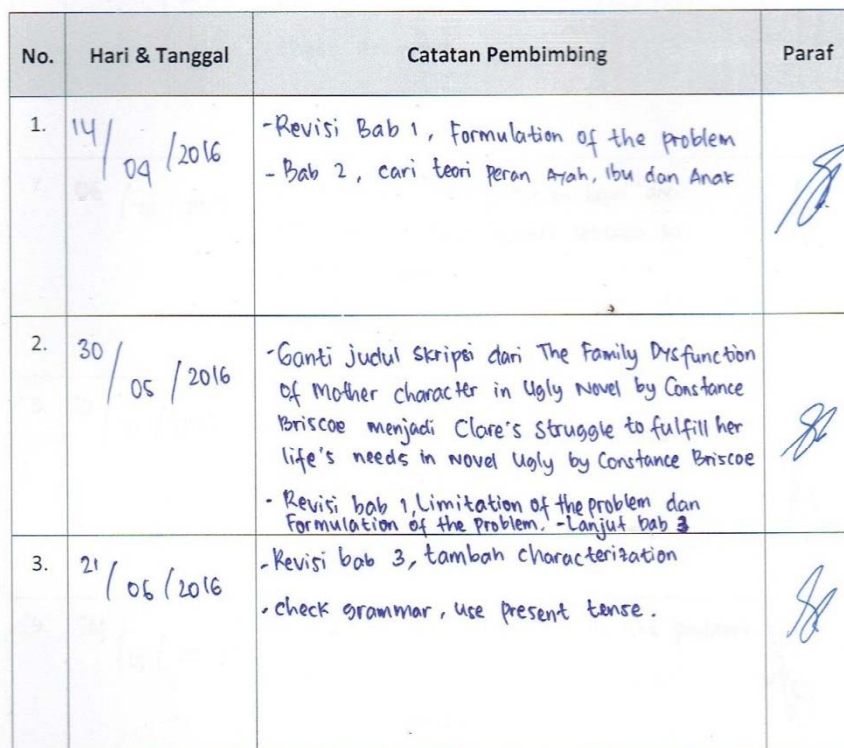 No. Hari & Tanggal Catatan Pembimbing Paraf
1. 14/04/2016
-Revisi Bab 1, Formulation of the problem
- Bab 2, cari teori peran Ayah, ibu dan Anak
2. 30/05/2016
-Ganti judul skripsi dari The Family Dysfunction
of Mother character in Ugly Novel by Constance
Briscoe menjadi Clare's Struggle to fulfill her
life's needs in Novel Ugly by Constance Briscoe
- Revisi bab 1, Limitation of the problem dan
Formulation of the Problem. -Lanjut bab 3
3. 21/06/2016
-Revisi bab 3, tambah characterization
-check grammar, use present tense.